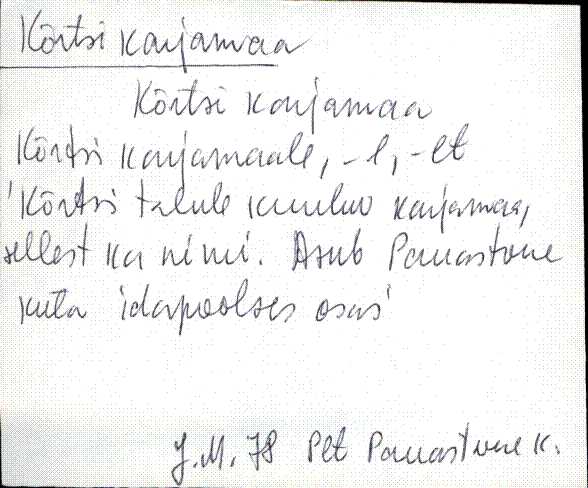 Kõrtsi karjamaa
Kõrtsi karjamaa
Kõrtsi karjamaale, -l, -lt
'Kõrtsi talule kuuluv karjamaa,
sellest ka nimi. Asub Panastvere
küla idapoolses osas'
J.M. 78 Plt Panastvere k.